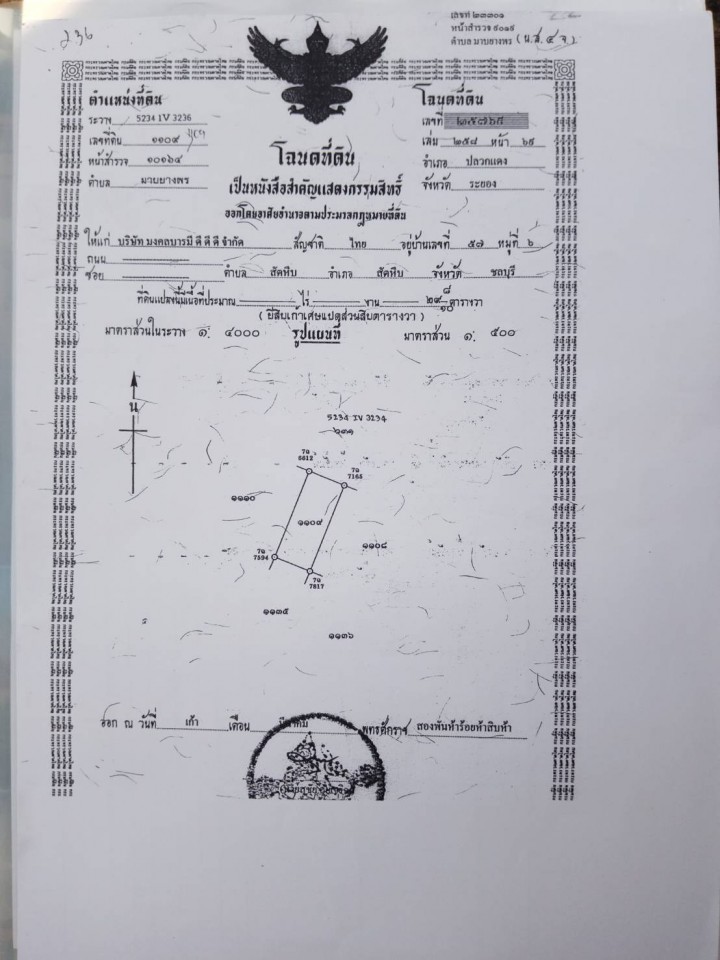 เลขที่ ๒๓๓๐๑
หน้าสำรวจ ๙๐๑๙
ตำบล มาบยางพร (น.ส.๔ จ.)
236
ตำแหน่งที่ดิน
ระวาง 5234 IV 3236
เลขที่ดิน ๑๑๐๙
หน้าสำรวจ ๑๐๑๖๔
ตำบล มาบยางพร
โฉนดที่ดิน
เลขที่ ๒๕๘๗๖๕
เล่ม ๒๕๘๘ หน้า ๖๕
อำเภอ ปลวกแดง
จังหวัด ระยอง
โฉนดที่ดิน
เป็นหนังสือสำคัญแสดงกรรมสิทธิ์
ออกโดยอาศัยอำนาจตามประมวลกฎหมายที่ดิน
ให้แก่ บริษัท มงคลบารมี ดี ดี ดี จำกัด สัญชาติ ไทย อยู่บ้านเลขที่ ๕๗ หมู่ที่ ๖
ถนน
ซอย ตำบล สัตหีบ อำเภอ สัตหีบ จังหวัด ชลบุรี
ที่ดินแปลงนี้มีเนื้อที่ประมาณ ไร่ งาน ๒๙ ๘/๑๐ ตารางวา
( ยี่สิบเก้าเศษแปดส่วนสิบตารางวา )
มาตราส่วนในระวาง ๑: ๔๐๐๐ รูปแผนที่ มาตราส่วน ๑: ๕๐๐
น
5234 IV 3234
7อ
6612
7อ
7165
๑๑๑๐
๑๑๐๙
๑๑๐๘
7อ
7594
7อ
7617
๑๑๓๕
๑๑๓๖
ออก ณ วันที่ เก้า เดือน มีนาคม พุทธศักราช สองพันห้าร้อยห้าสิบห้า